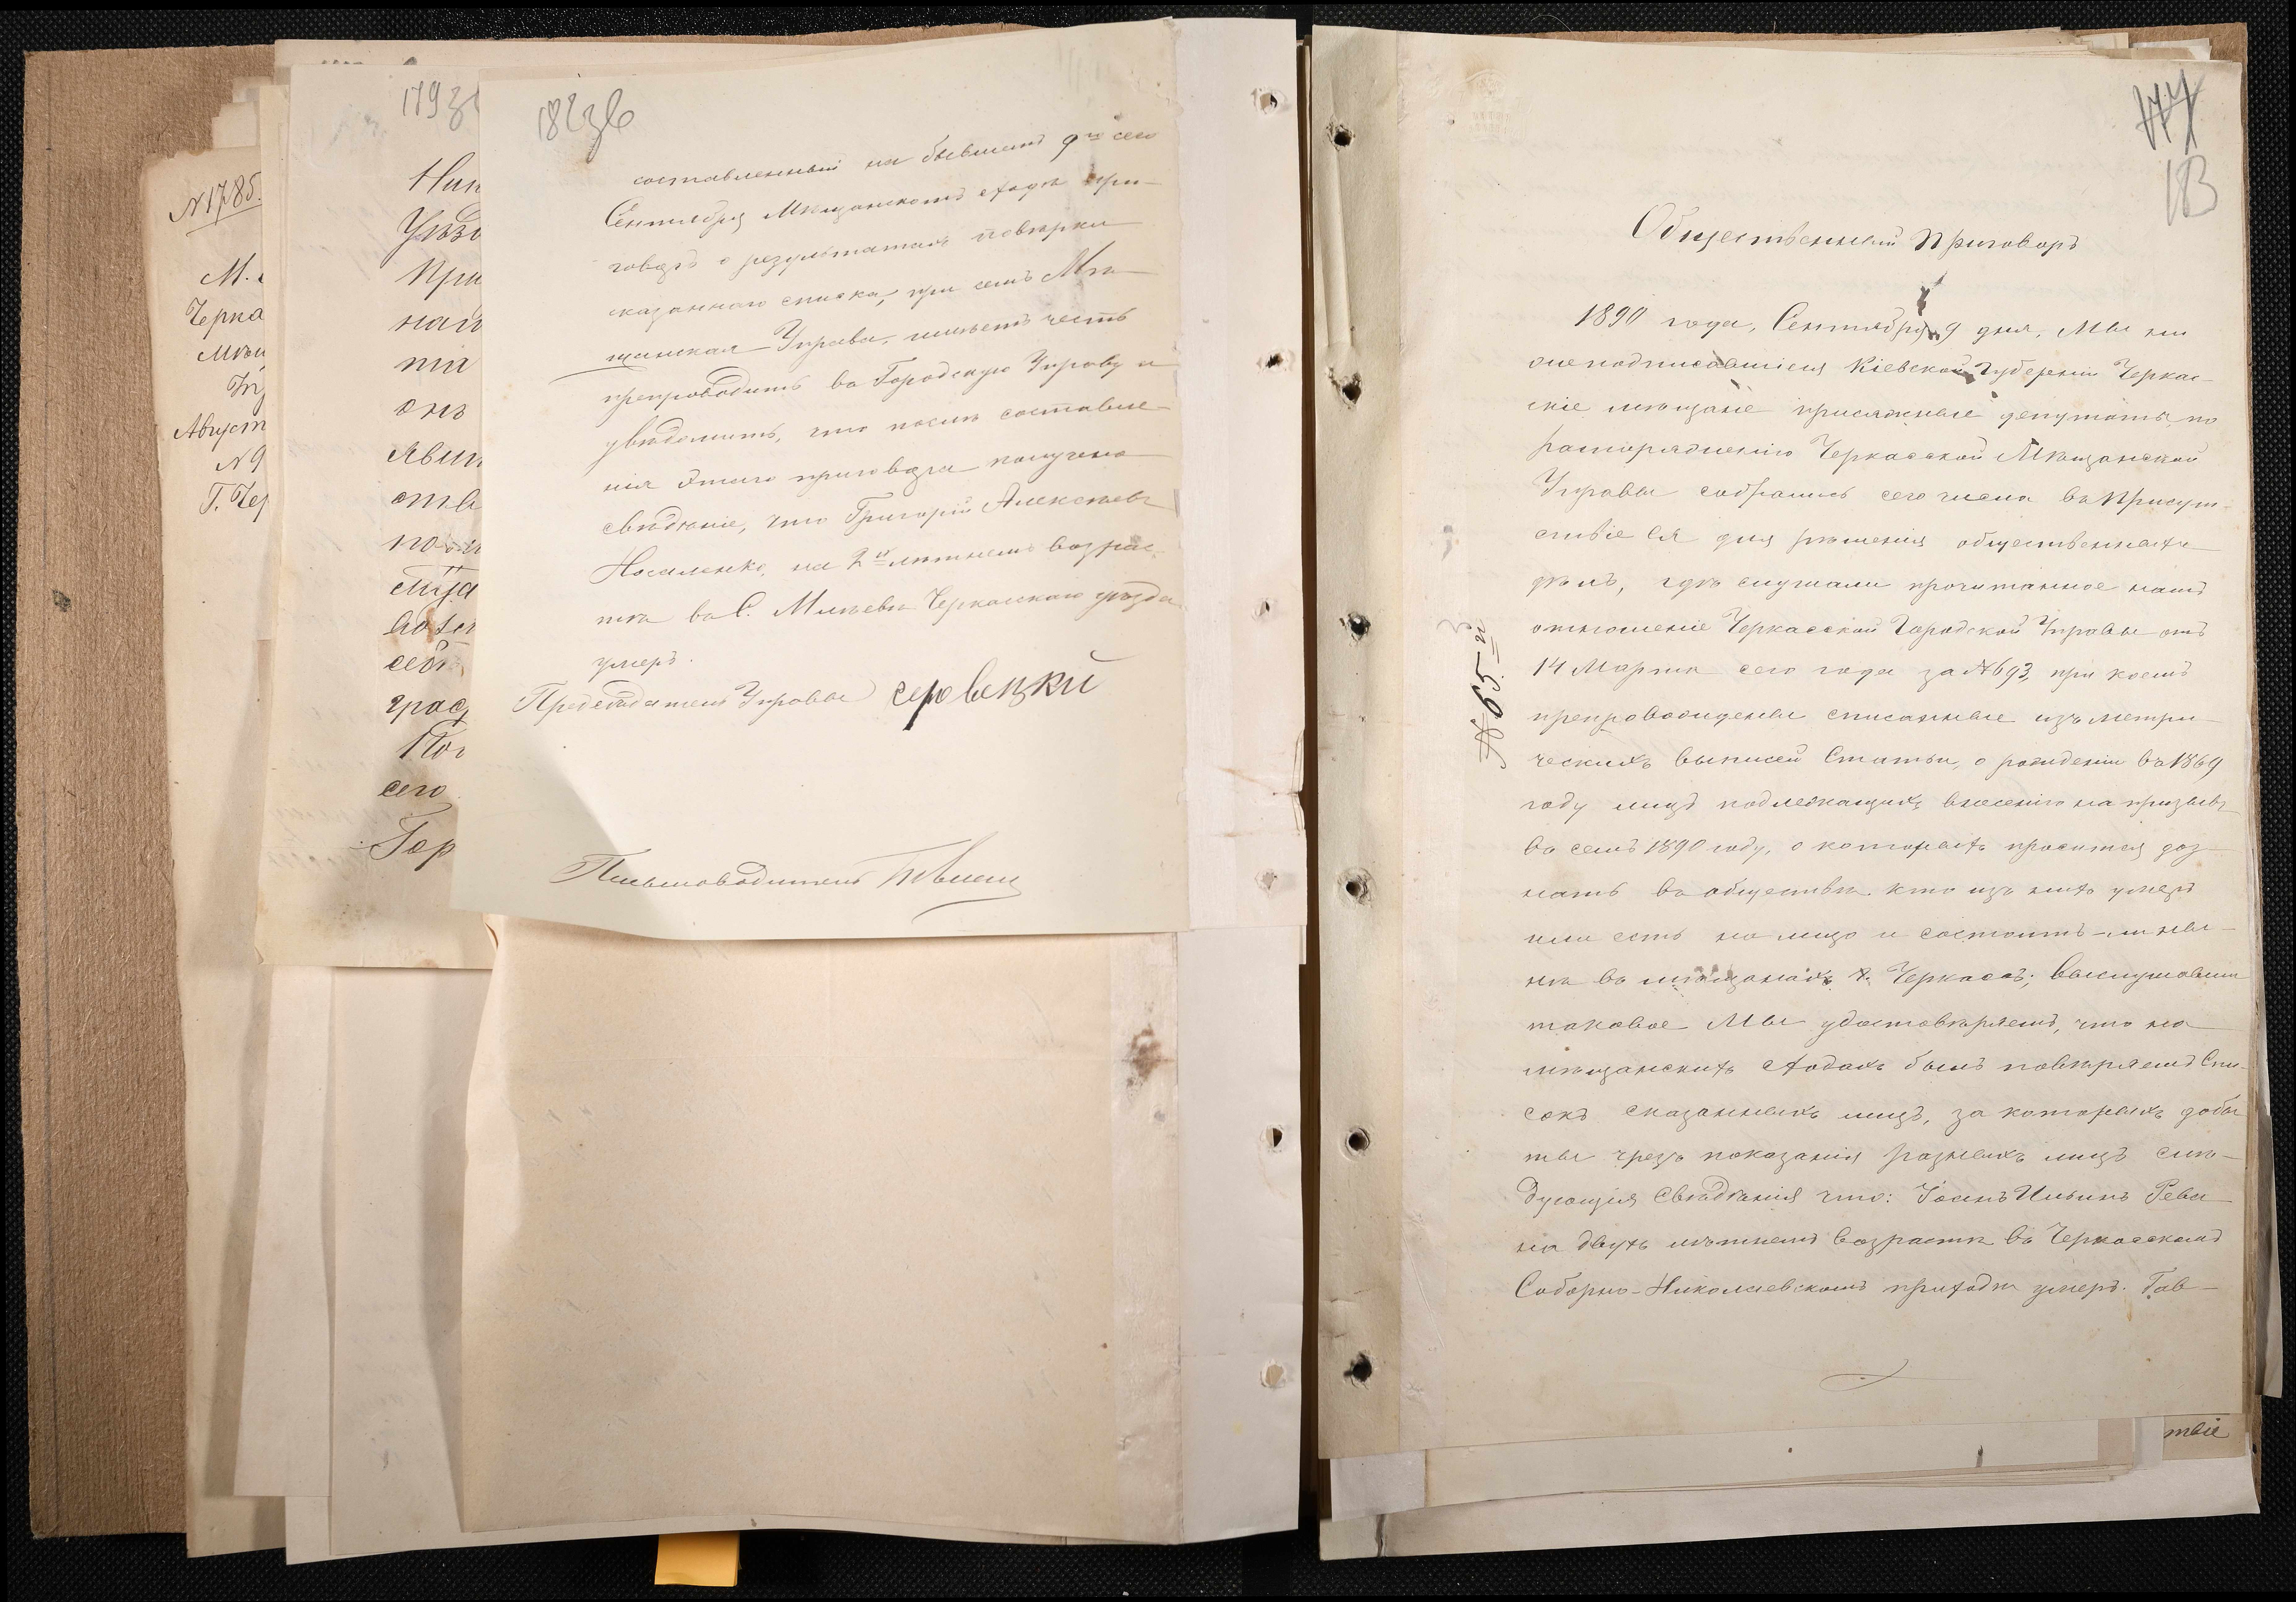 N1785.
М.
Черка
Мѣщ
Августа
N9
Г. Чер
179зв
Уѣзд
При
най
сего
Гор
182зв
составленный на бывшемъ 9го сего
Сентября Мѣщанскомъ сходѣ при-
говоръ о результатахъ повѣрки
сказаннаго списка, при семъ Мѣ-
щанская Управа, имѣетъ честь
препроводить въ Городскую Управу и
увѣдомить, что послѣ составле-
нія этого приговора получено
свѣдѣніе, что Григорій Алексѣевъ
Носаленко, на 2хъ лѣтнемъ возрас-
тѣ въ С. Млѣевѣ Черкасскаго уѣзда
умеръ.
Предсѣдатель Управы Серовецкій
Письмоводитель
177
183
Общественный Приговоръ
1890 года, Сентября 9 дня, Мы ни
жеподписавшіеся Кіевской Губерніи Черкас-
скіе мѣщане присяжные депутаты, по
распоряженію Черкасской Мѣщанской
Управы собрались сего числа въ Присут-
ствіе ея для рѣшенія общественныхъ
дѣлъ, гдѣ слушали прочитанное намъ
отношеніе Черкасской Городской Управы отъ
14 Марта сего года за №693, при коемъ
препровождены списанные изъ метри-
ческихъ выписей Статьи, о рожденіи въ 1869
году лицъ подлежащихъ внесенію на призывъ
въ семъ 1890 году, о которыхъ просится доз-
нать въ обществѣ кто изъ нихъ умеръ
или есть на лицо и состоитъ-ли ны-
нѣ въ мѣщанахъ г. Черкасъ; выслушавши
таковое Мы удостовѣряемъ, что на
мѣщанскихъ сходахъ былъ повѣряемъ Спи-
сокъ сказанныхъ лицъ, за которыхъ добы
ты чрезъ показанія разныхъ лицъ слѣ-
дующія свѣдѣнія что: Іоанъ Ильинъ Рева
на двухъ лѣтнемъ возрастѣ въ Черкасскомъ
Соборно-Николаевскомъ приходѣ умеръ. Гав-
№ 65.й
твіе